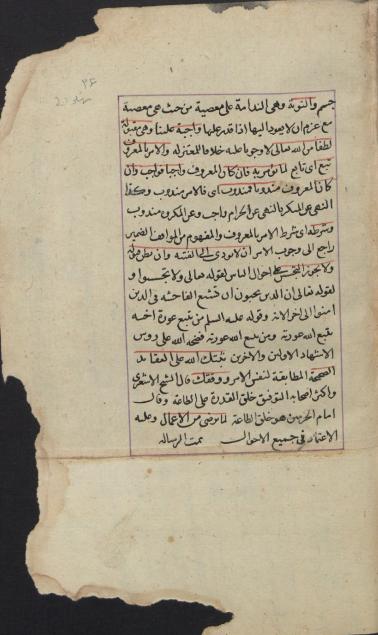 جسم والتوبة وهى الندامة على معصية من حيث هى معصية
مع عزم ان لا يعود اليها اذا قدر عليها واجبة علينا وهى مقبولة
لطفا من الله تعالى لا وجوبا عليه خلافا للمعتزلة والامر بالمعروف
تبع اى تابع لما يؤمر به فان كان المعروف واجبا فواجب وان
كان المعروف مندوبا فمندوب اى فالامر مندوب وكذا
النهى عن المنكر فالنهى عن الحرام واجب وعن المكروه مندوب
وشرطه اى شرط الامر بالمعروف والمفهوم من المواقف الضمير
راجع الى وجوب الامر ان لا يودى الى الفتنة وان يظن قبوله
ولا يجوز التجسس احوال الناس لقوله تعالى ولا تجسسوا و
لقوله تعالى ان الذين يحبون ان تشيع الفاحشة فى الذين
امنوا الى اخر الاية وقوله عليه السلم من تتبع عورة اخيه
تتبع الله عورته ومن تتبع الله عورته فضحه الله على روس
الاشهاد الاولين والاخرين ثبتك الله على العقايد
الصحيحة المطابقة لنفس الامر ووفقك قال الشيخ الاشعرى
واكثر اصحابه التوفيق خلق القدرة على الطاعة وقال
امام الحرمين هو خلق الطاعة لما يرضى من الاعمال وعليه
الاعتماد فى جميع الاحوال تمت الرساله